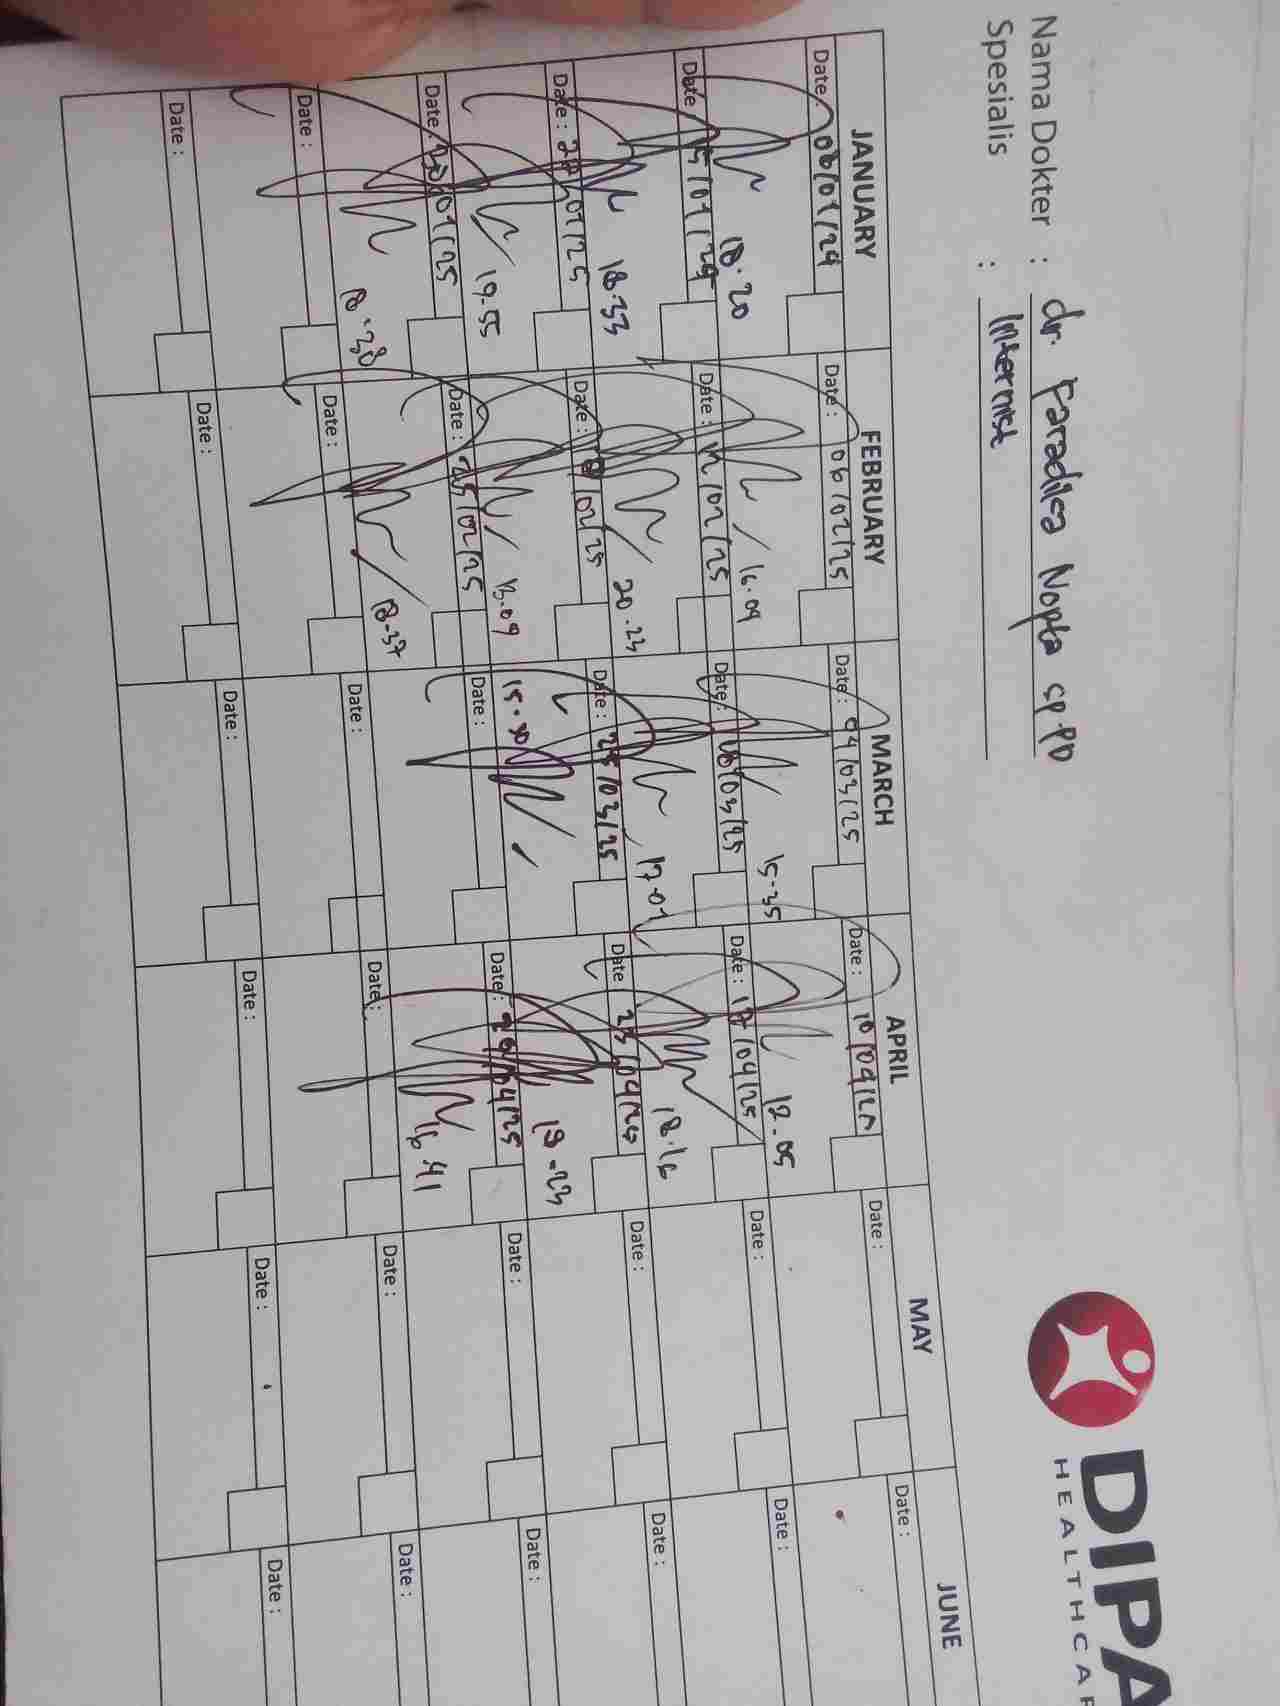 Nama Dokter : dr. Faradilsa Nopta sp PD
Spesialis : Internist
DIPA
HEALTHCAR
JANUARY FEBRUARY MARCH APRIL MAY JUNE
Date : 06/01/24 Date : 06/02/25 Date : 04/03/25 Date : 10/04/25 Date : Date :
18.20 16.09 15.35 12.05
Date : 15/01/25 Date : 12/02/25 Date : 18/03/25 Date : 17/04/25 Date : Date :
18.33 20.23 17.01 18.16
Date : 22/01/25 Date : /02/25 Date : 25/03/25 Date : 23/04/25 Date : Date :
19.55 13.09 15.30 18.23
Date : 30/01/25 Date : 25/02/25 Date : Date : 29/04/25 Date : Date :
18.38 18.37 16.41
Date : Date : Date : Date : Date : Date :
Date : Date : Date : Date : Date : Date :